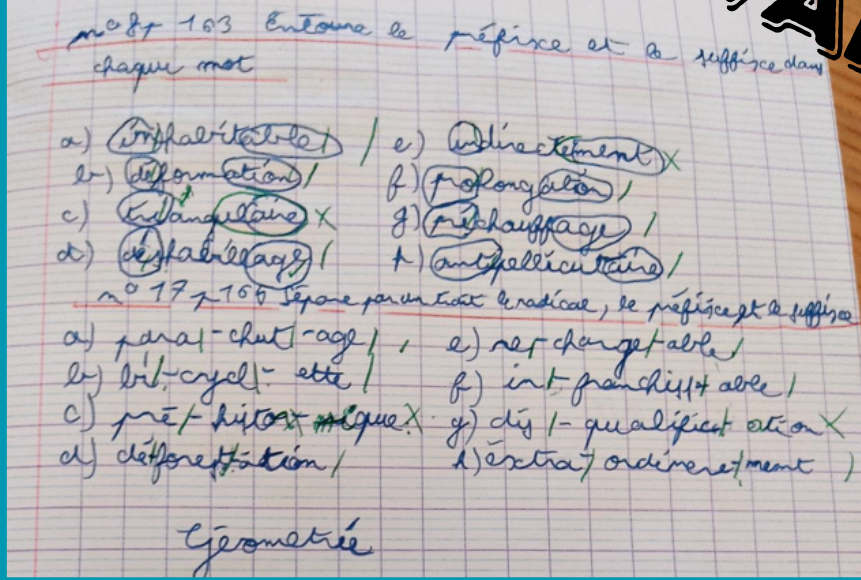 n° 8 p 163 Entoure le préfixe et le suffixe dans
chaque mot
a) inhabitable / e) indirectement X
b) déformation / f) prolongation /
c) triangulaire X g) préchauffage /
d) déshabillage / h) antipelliculaire /
n° 17 p 166 Sépare par un trait le radical, le préfixe et le suffixe
a) para-chut-age / e) re-change-able /
b) bi-cycl-ette / f) in-franchiss-able /
c) pré-histo-rique X g) dis-qualific-ation X
d) déforestation / h) extra-ordinaire-ment /
Géometrie